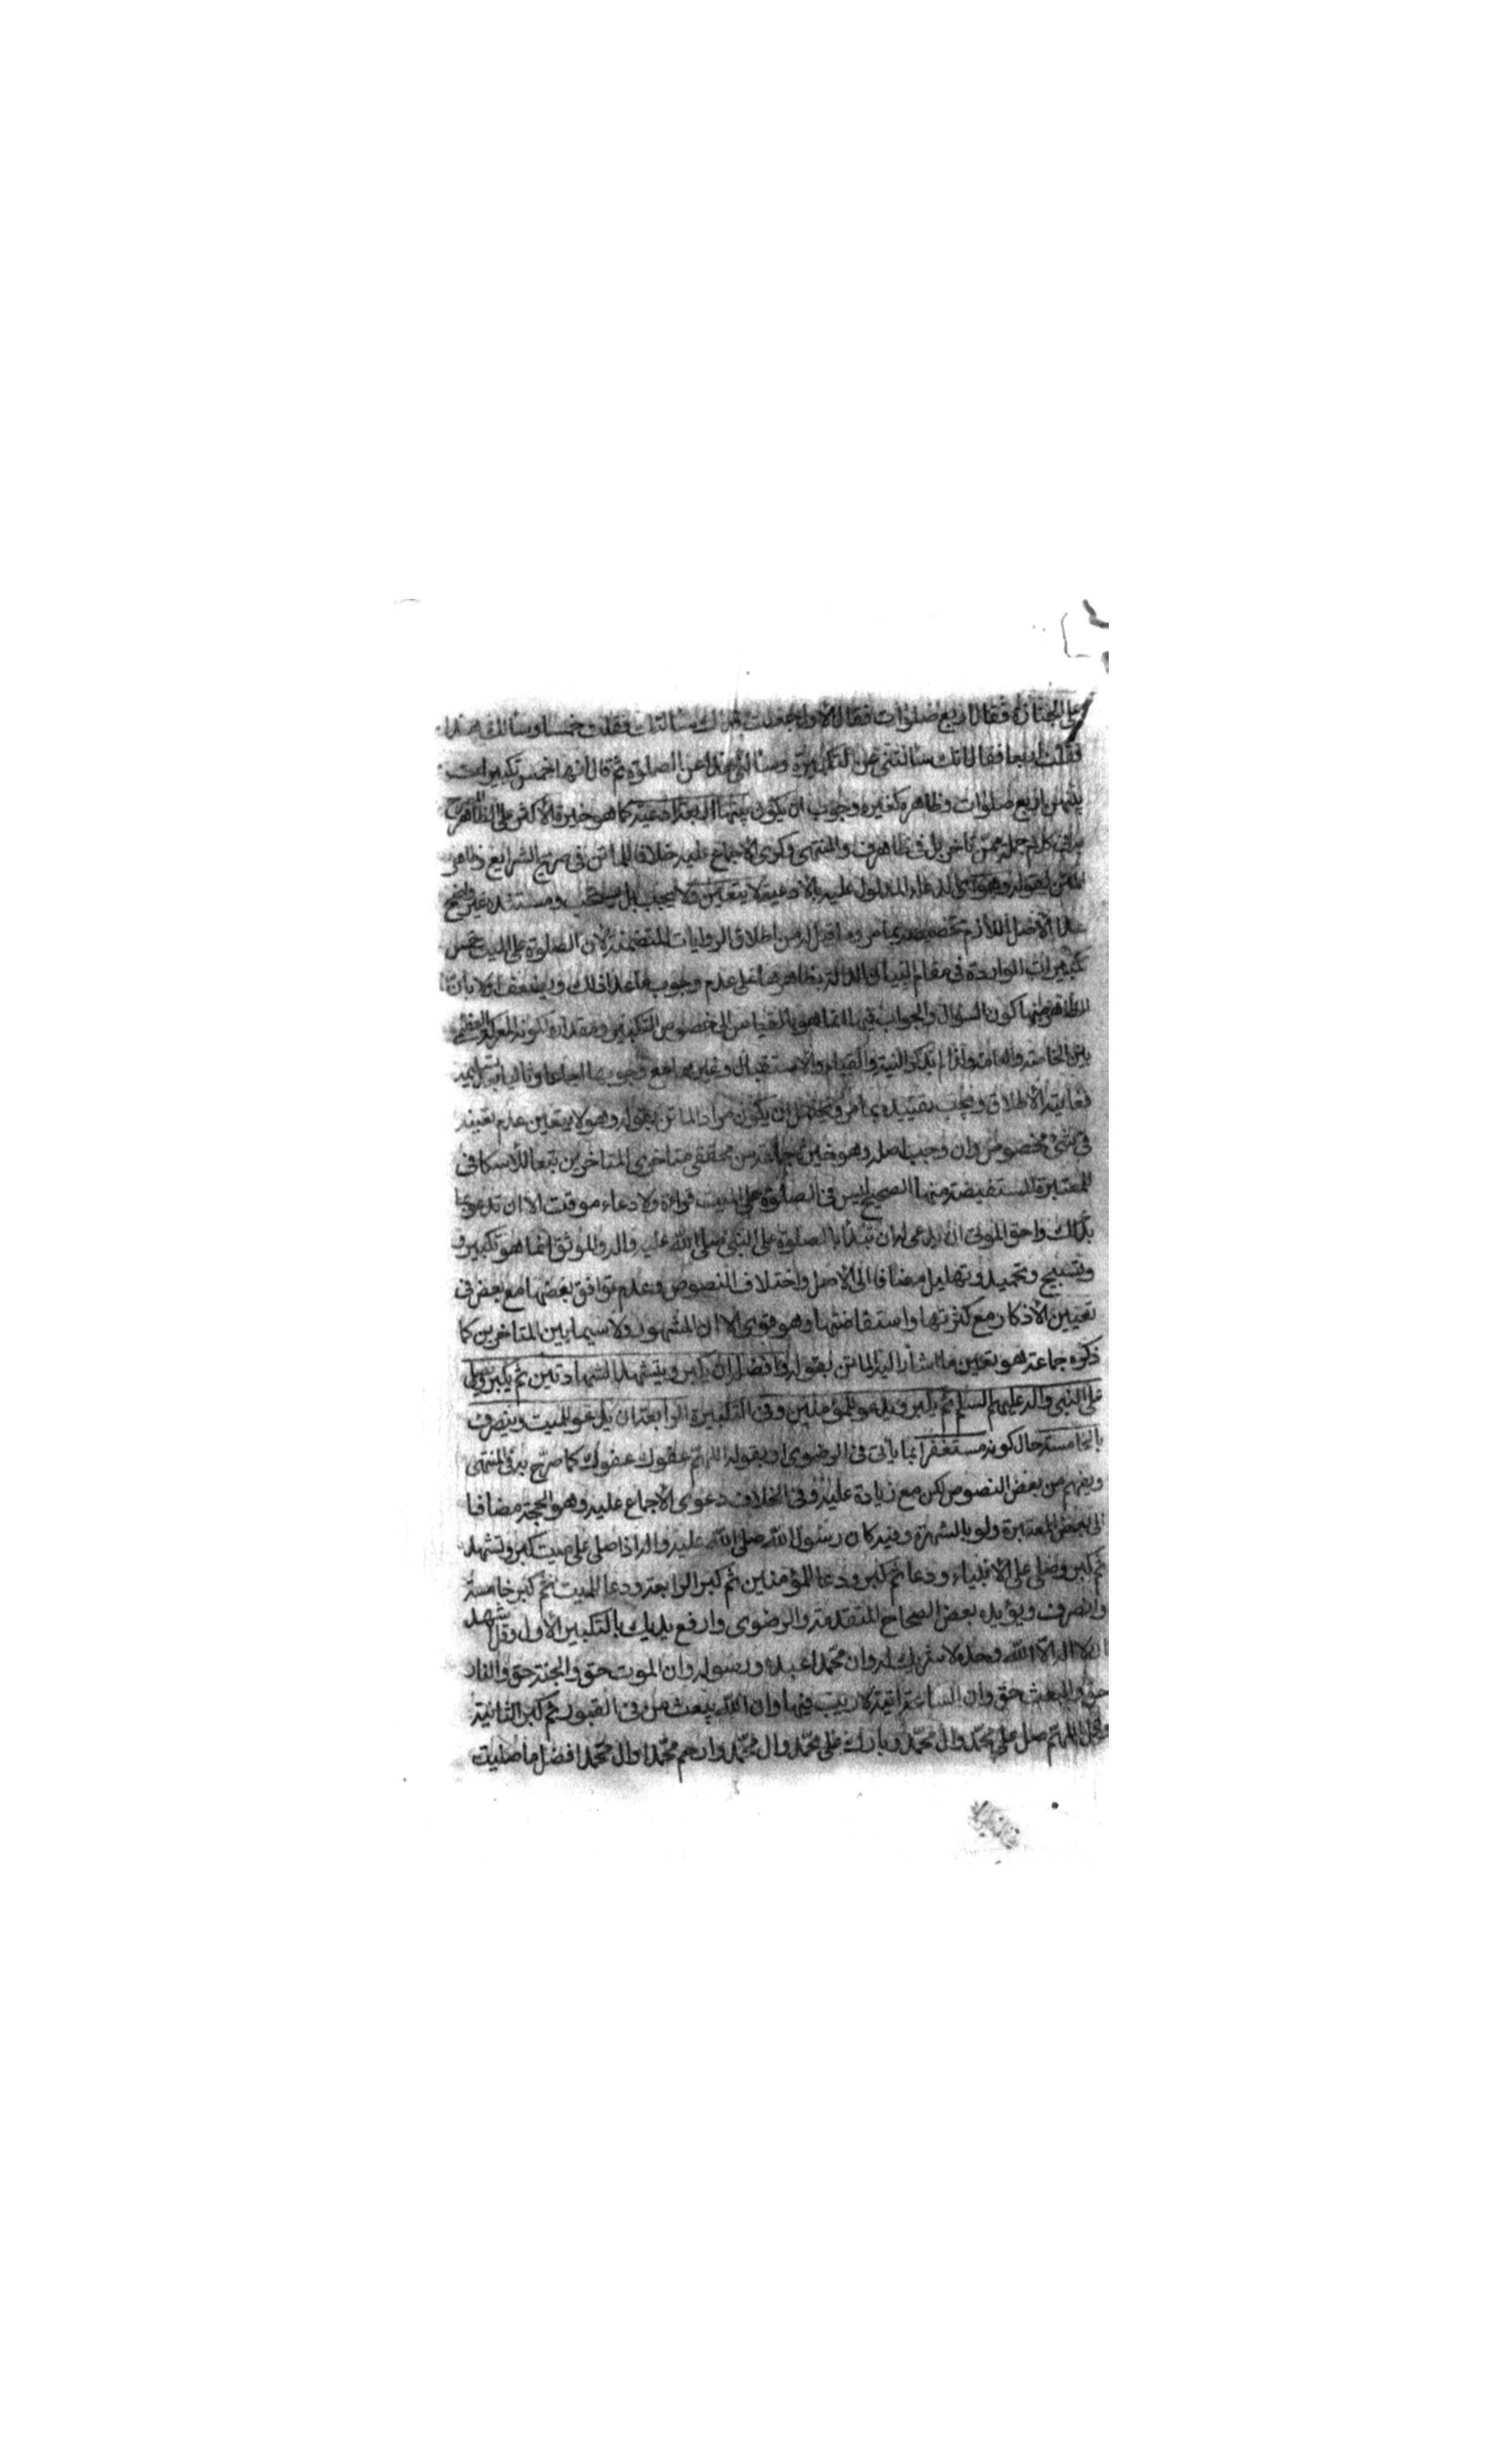 على الجنازة فقال اربع صلوات فقال الاول جعلت فداك سألتك فقلت خمسا وسألك هذا
فقلت اربعا فقال انك سألتنى عن التكبيرة وسألنى هذا عن الصلوة ثم قال انها خمس تكبيرات
بينهن اربع صلوات وظاهره كغيره وجوب ان يكون بينها اربعة ادعية كما هو خيرة الاكثر على الظاهر
كلام جملة ممن تأخر بل فى ظاهر والمنتهى وكرى الاجماع عليه خلافا للماتن فى صريح الشرايع وظاهر
المتن لقوله وهو اى الدعاء المدلول عليه بالادعية لا يتعين ولا يجب بل يستحب ومستنده غير واضح
عدا الاصل اللازم تخصيصه بما مر وما قيل له من اطلاق الروايات المتضمنة لان الصلوة على الميت خمس
تكبيرات الواردة فى مقام البيان الدالة بظاهرها على عدم وجوب ما عدا ذلك ويضعف اولا بان
الظاهر منها كون السؤال والجواب فيها انما هو بالقياس الى خصوص التكبير ومقداره لكونه المعركة العظمى
بين الخاصة والعامة ولذا لم يذكر النية والقيام والاستقبال وغيرها مع وجوبها اجماعا وثانيا بعد تسليمه
فغايته الاطلاق ويجب تقييده بما مر ويحتمل ان يكون مراد الماتن بقوله وهو لا يتعين عدم تعينه
فى شئ مخصوص وان وجب اصله وهو خيرة جماعة من محققى متاخرى المتاخرين تبعا للاسكافى
للمعتبرة المستفيضة منها الصحيح ليس فى الصلوة على الميت قراءة ولا دعاء موقت الا ان تدعو بما
بدا لك واحق الموتى ان يدعى له ان تبدأ بالصلوة على النبى صلى الله عليه واله والموثق انما هو تكبير و
وتسبيح وتحميد وتهليل مضافا الى الاصل واختلاف النصوص وعدم توافق بعضها مع بعض فى
تعيين الاذكار مع كثرتها واستفاضتها وهو قوى الا ان المشهور ولا سيما بين المتاخرين كما
ذكره جماعة هو تعيين ما اشار اليه الماتن بقوله وافضله ان يكبر ويتشهد الشهادتين ثم يكبر ويصلى
على النبى واله عليهم السلم ثم يكبر ويدعو للمؤمنين وفى التكبيرة الرابعة ان يدعو للميت وينصرف
بالخامسة حال كونه مستغفرا بما يأتى فى الرضوى او بقوله اللهم عفوك عفوك كما صرح به فى المنتهى
ويفهم من بعض النصوص لكن مع زيادة عليه وفى الخلاف دعوى الاجماع عليه وهو الحجة مضافا
الى بعض المعتبرة ولو بالشهرة وفيه كان رسول الله صلى الله عليه واله اذا صلى على ميت كبر وتشهد
ثم كبر وصلى على الانبياء ودعا ثم كبر ودعا للمؤمنين ثم كبر الرابعة ودعا للميت ثم كبر خامسة
وانصرف ويؤيده بعض الصحاح المتقدمة والرضوى وارفع يديك بالتكبير الاول وقل اشهد
ان لا اله الا الله وحده لا شريك له وان محمدا عبده ورسوله وان الموت حق والجنة حق والنار
حق والبعث حق وان الساعة اتية لا ريب فيها وان الله يبعث من فى القبور ثم كبر الثانية
وقل اللهم صل على محمد وال محمد وبارك على محمد وال محمد وارحم محمدا وال محمد افضل ما صليت